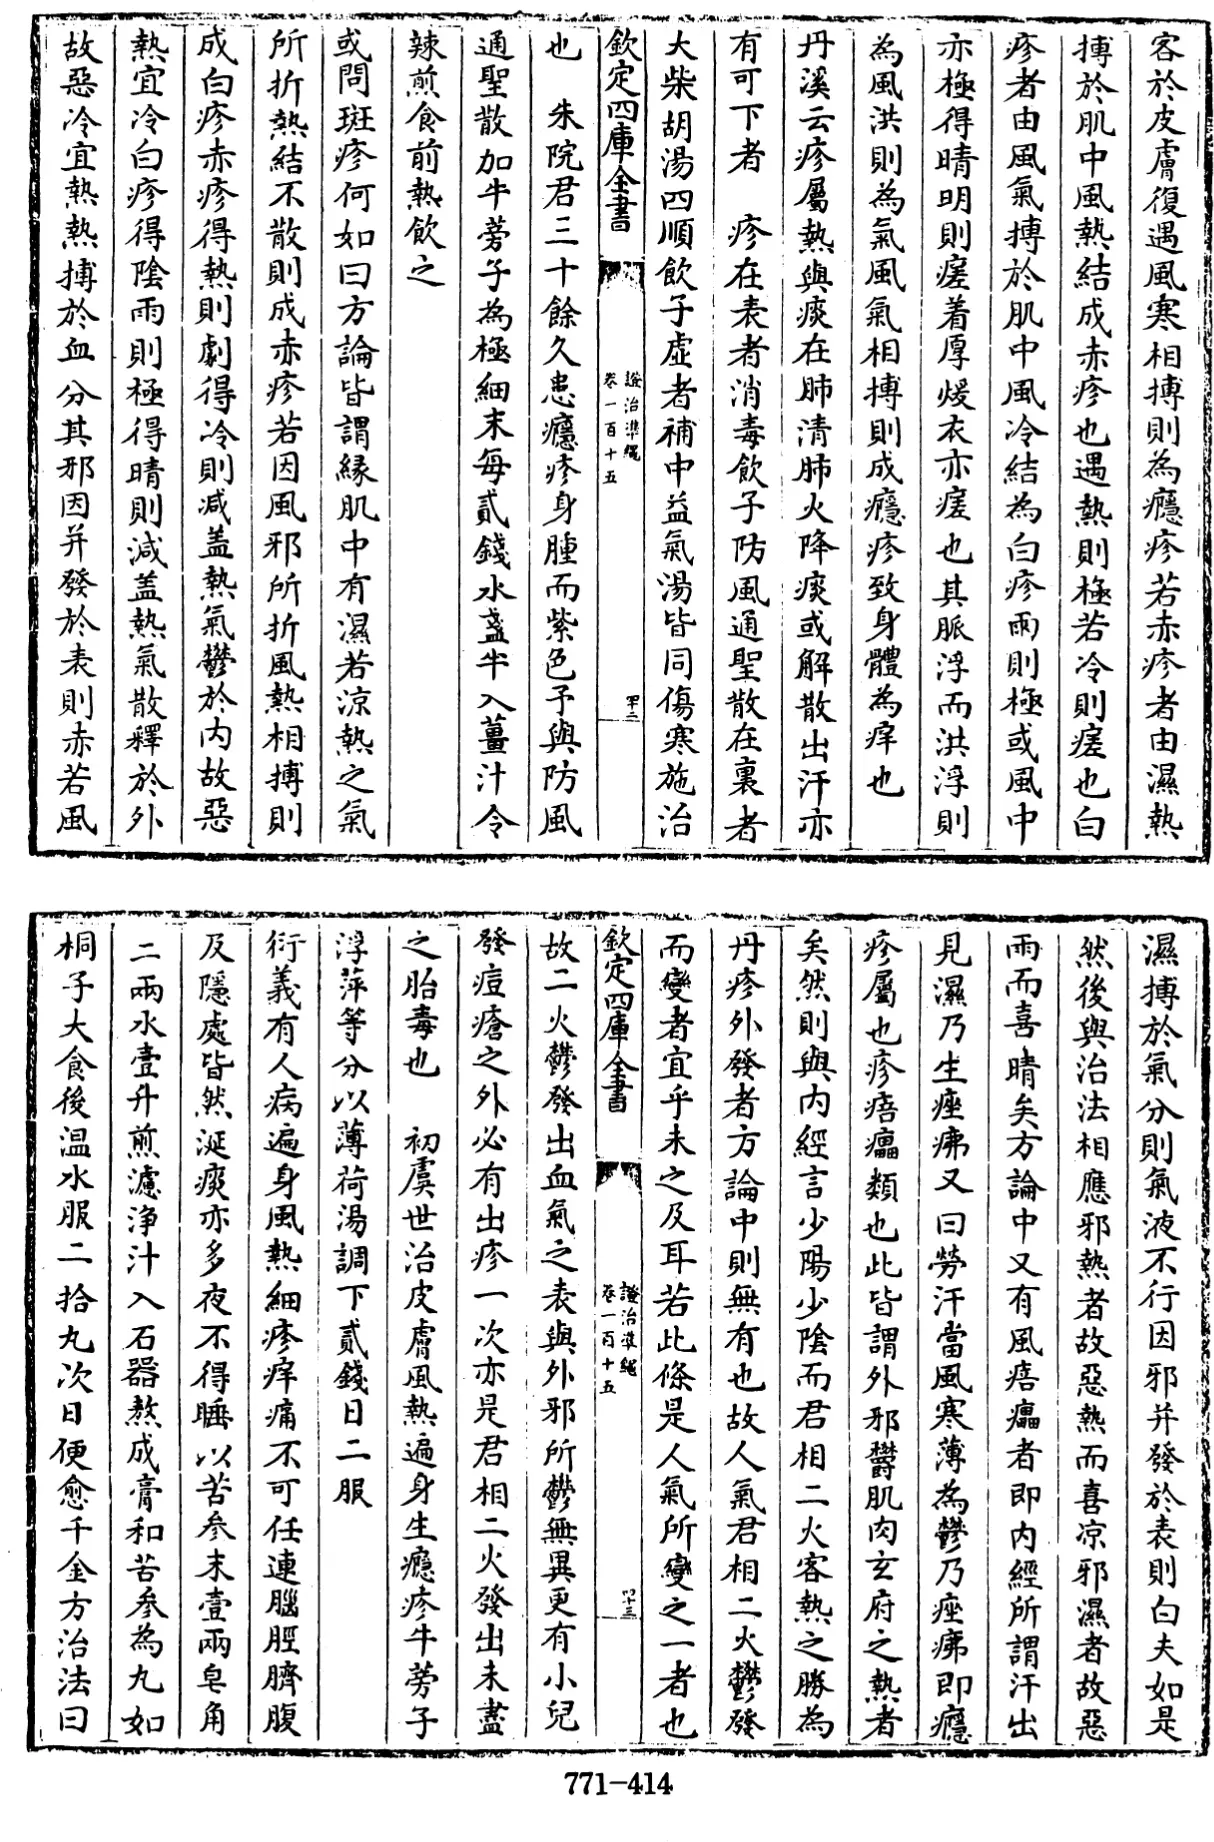 客於皮膚復遇風寒相搏則為癮疹若赤疹者由濕熱
搏於肌中風熱結成赤疹也遇熱則極若冷則瘥也白
疹者由風氣搏於肌中風冷結為白疹雨則極或風中
亦極得晴明則瘥着厚煖衣亦瘥也其脈浮而洪浮則
為風洪則為氣風風氣相搏則成癮疹致身體為痒也
丹溪云疹屬熱與痰在肺清肺火降痰或解散出汗亦
有可下者　疹在表者消毒飲子防風通聖散在裏者
大柴胡湯四順飲子虛者補中益氣湯皆同傷寒施治
欽定四庫全書
證治準繩
卷一百十五
四十二
也　朱院君三十餘久患癮疹身腫而紫色予與防風
通聖散加牛蒡子為極細末每貳錢水盞半入薑汁令
辣煎食前熱飲之
或問斑疹何如曰方論皆謂緣肌中有濕若涼熱之氣
所折熱結不散則成赤疹若因風邪所折風熱相搏則
成白疹赤疹得熱則劇得冷則减盖熱氣鬱於内故惡
熱宜冷白疹得陰雨則極得晴則減盖熱氣散釋於外
故惡冷宜熱熱搏於血分其邪因并發於表則赤若風
濕搏於氣分則氣液不行因邪并發於表則白夫如是
然後與治法相應邪熱者故惡熱而喜凉邪濕者故惡
雨而喜晴矣方論中又有風㾦㿔者即内經所謂汗出
見濕乃生痤疿又曰勞汗當風寒薄為鬱乃痤疿即癮
疹屬也疹㾦㿔類也此皆謂外邪欝肌肉玄府之熱者
矣然則與内經言少陽少陰而君相二火客熱之勝為
丹疹外發者方論中則無有也故人氣君相二火鬱發
而變者宜乎未之及耳若此條是人氣所變之一者也
欽定四庫全書
證治準繩
卷一百十五
四十三
故二火鬱發出血氣之表與外邪所鬱無異更有小兒
發痘瘡之外必有出疹一次亦是君相二火發出未盡
之胎毒也　初虞世治皮膚風熱遍身生癮疹牛蒡子
浮萍等分以薄荷湯調下貳錢日二服
衍義有人病遍身風熱細疹痒痛不可任連腦脛臍腹
及隱處皆然涎痰亦多夜不得睡以苦參末壹兩皂角
二兩水壹升煎濾淨汁入石器熬成膏和苦參為丸如
桐子大食後溫水服二拾丸次日便愈千金方治法曰
771-414